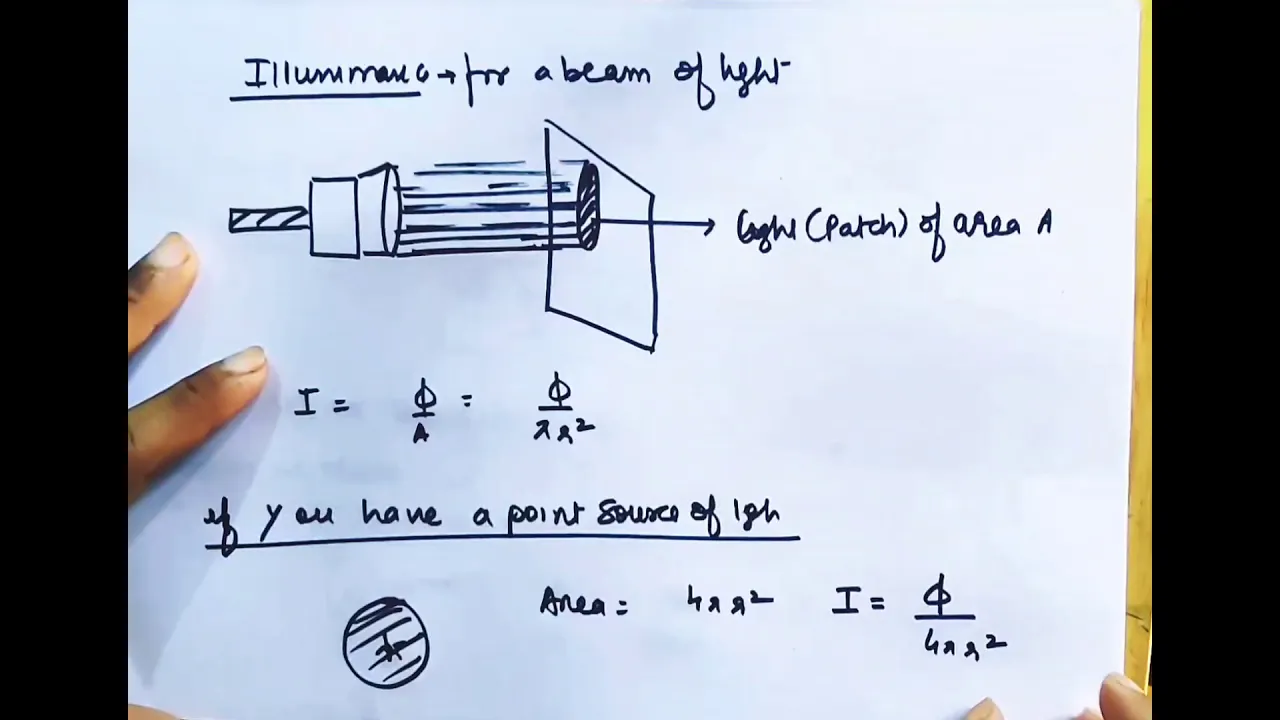 Illuminance → for a beam of light
light (Patch) of area A
I = Φ/A = Φ/πr²
if you have a point source of ligh
Area = 4πr² I = Φ/4πr²